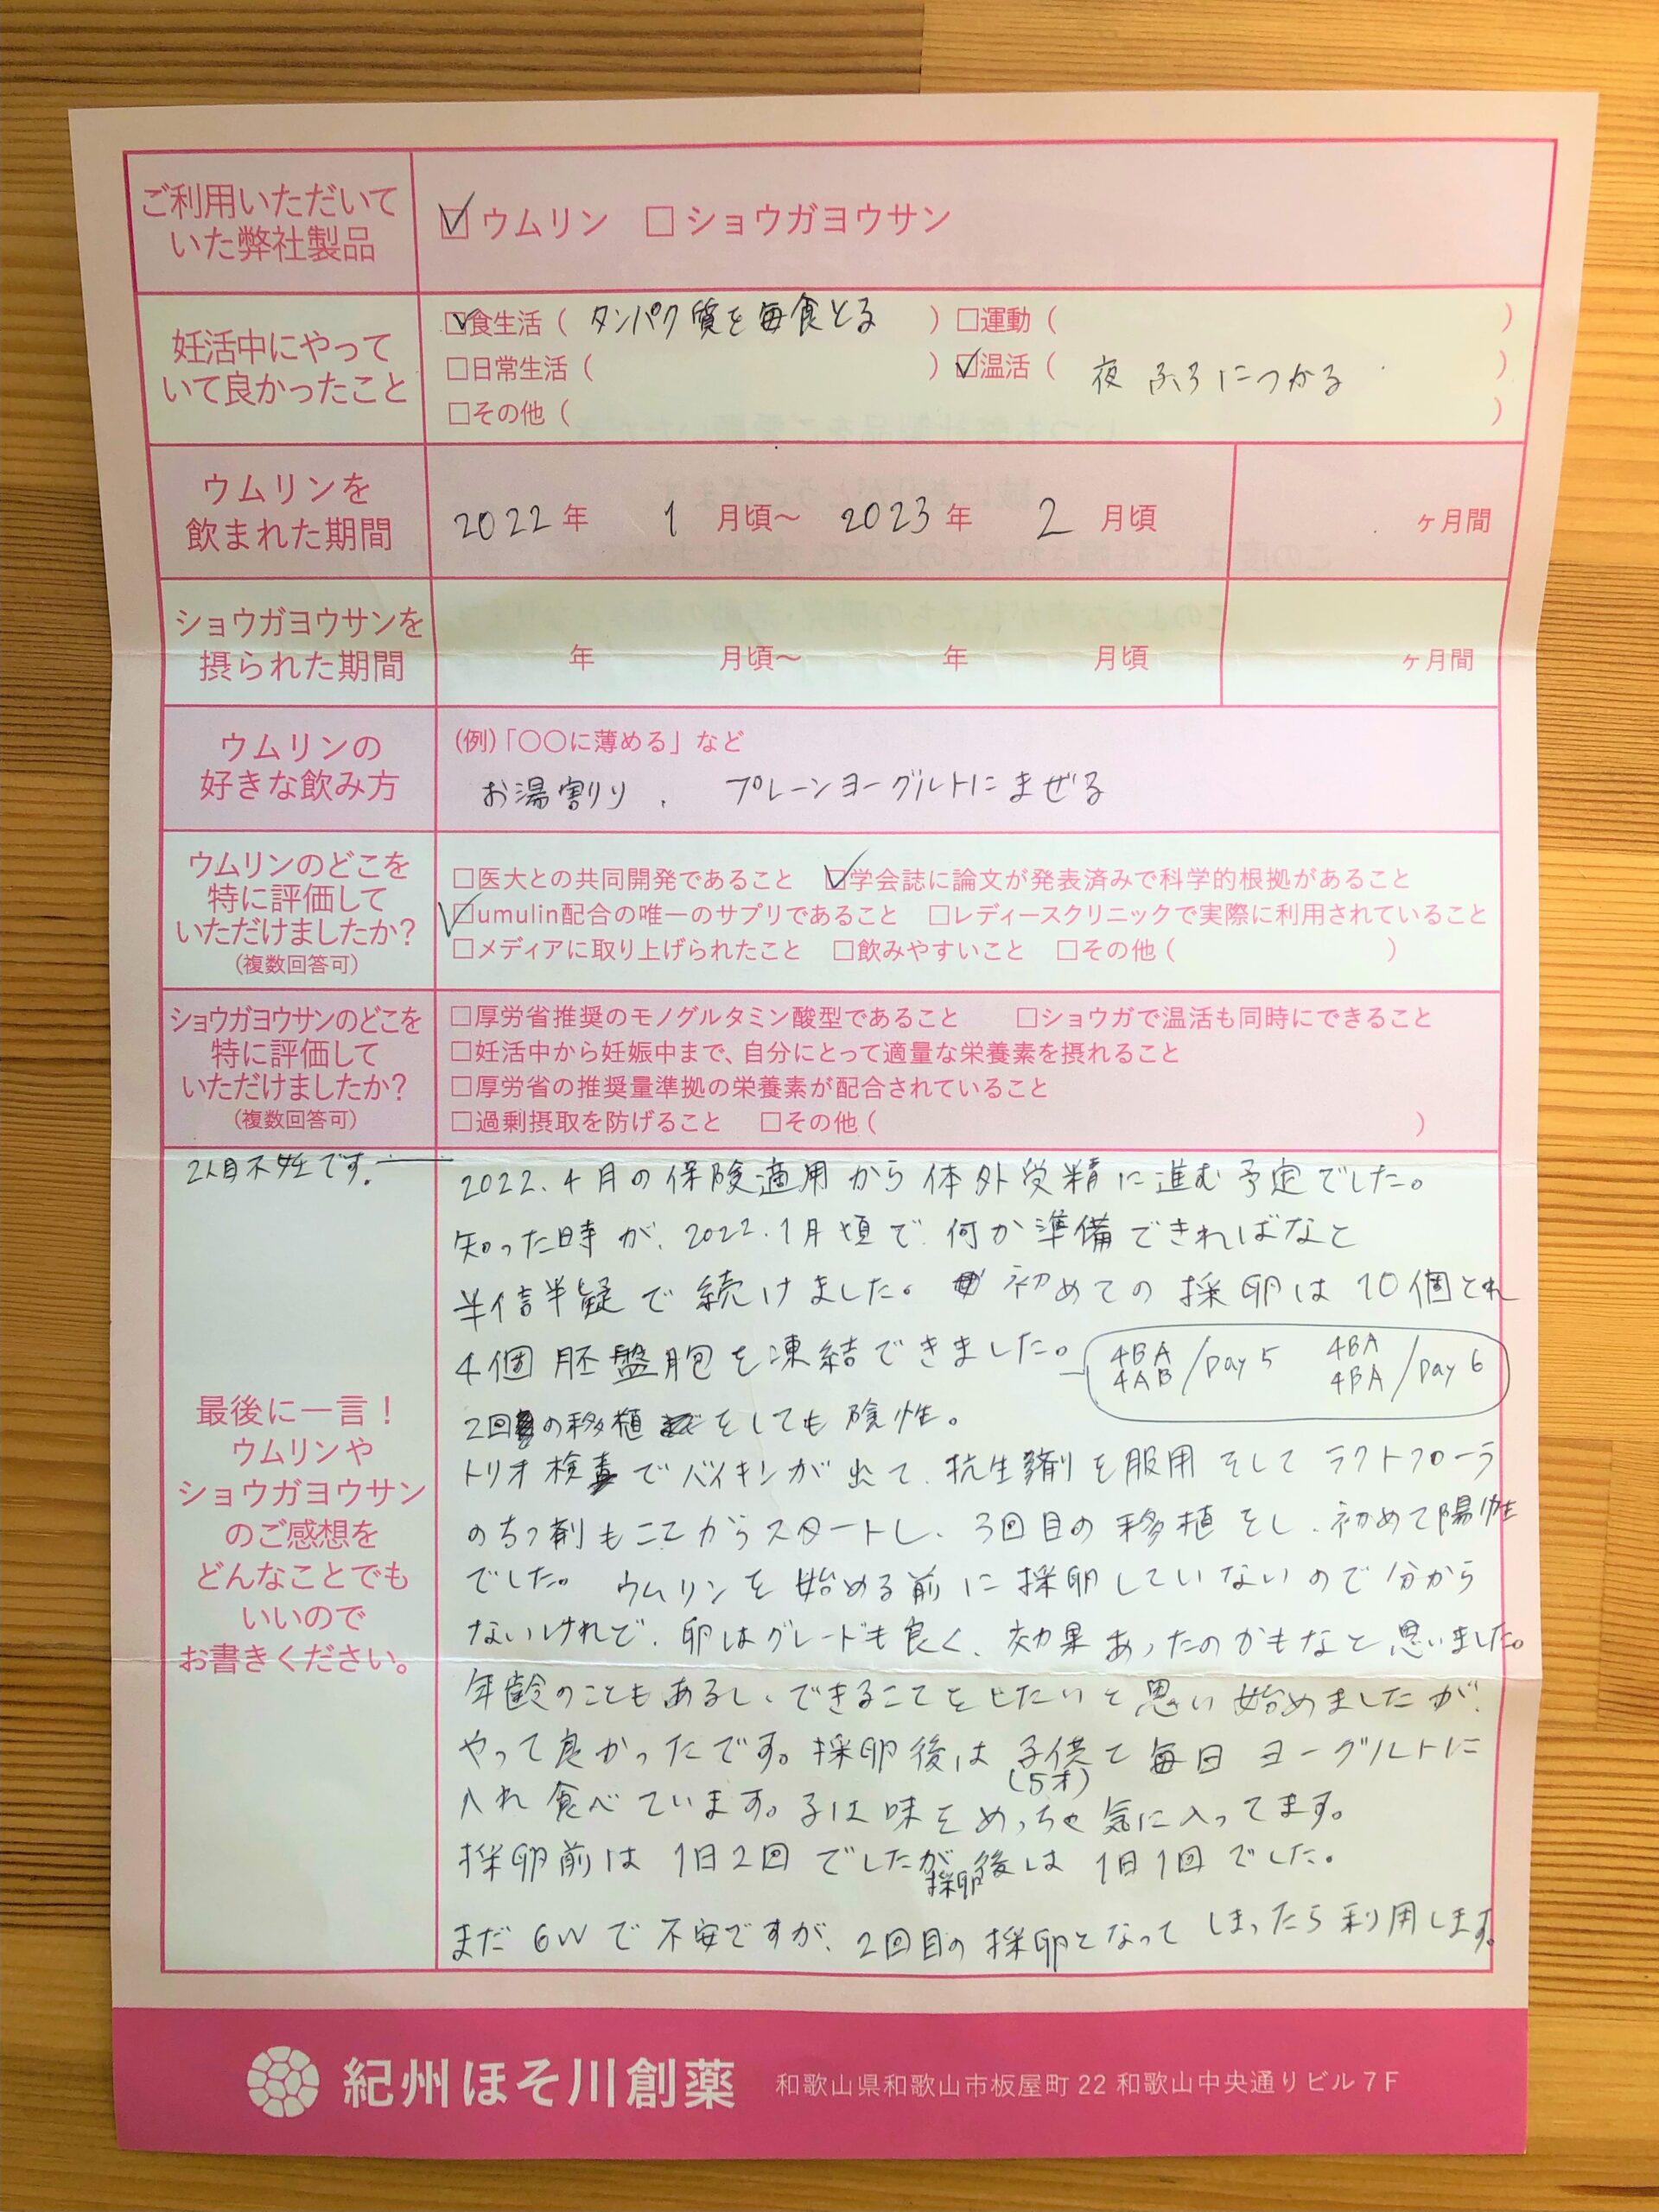 ご利用いただいて
いた弊社製品
☑ウムリン □ショウガヨウサン
妊活中にやって
いて良かったこと
☑食生活（タンパク質を毎食とる）□運動（ ）
□日常生活（ ）☑温活（夜 ふろにつかる）
□その他（ ）
ウムリンを
飲まれた期間
2022年 1月頃〜 2023年 2月頃 ヶ月間
ショウガヨウサンを
摂られた期間
年 月頃〜 年 月頃 ヶ月間
ウムリンの
好きな飲み方
(例)「〇〇に薄める」など
お湯割り、 プレーンヨーグルトにまぜる
ウムリンのどこを
特に評価して
いただけましたか?
(複数回答可)
□医大との共同開発であること ☑学会誌に論文が発表済みで科学的根拠があること
☑umulin配合の唯一のサプリであること □レディースクリニックで実際に利用されていること
□メディアに取り上げられたこと □飲みやすいこと □その他（ ）
ショウガヨウサンのどこを
特に評価して
いただけましたか?
(複数回答可)
□厚労省推奨のモノグルタミン酸型であること □ショウガで温活も同時にできること
□妊活中から妊娠中まで、自分にとって適量な栄養素を摂れること
□厚労省の推奨量準拠の栄養素が配合されていること
□過剰摂取を防げること □その他（ ）
最後に一言！
ウムリンや
ショウガヨウサン
のご感想を
どんなことでも
いいので
お書きください。
2人目不妊です。
2022.4月の保険適用から体外受精に進む予定でした。
知った時が、2022.1月頃で 何か準備できればなと
半信半疑で続けました。 初めての採卵は10個とれ
4個胚盤胞を凍結できました。
4BA
4AB /Day 5
4BA
4BA /Day 6
2回の移植をしても陰性。
トリオ検査でバイキンが出て、抗生剤を服用そしてラクトフローラ
のちつ剤もここからスタートし、3回目の移植をし、初めて陽性
でした。 ウムリンを始める前に採卵していないので分から
ないけれど、卵はグレードも良く、効果あったのかもなと思いました。
年齢のこともあるし、できることをしたいと思い始めましたが、
やって良かったです。採卵後は子供と毎日ヨーグルトに
(5才)
入れ食べています。子は味をめっちゃ気に入ってます。
採卵前は1日2回でしたが採卵後は1日1回でした。
まだ6Wで不安ですが、2回目の採卵となってしまったら利用します。
紀州ほそ川創薬 和歌山県和歌山市板屋町22 和歌山中央通りビル7F